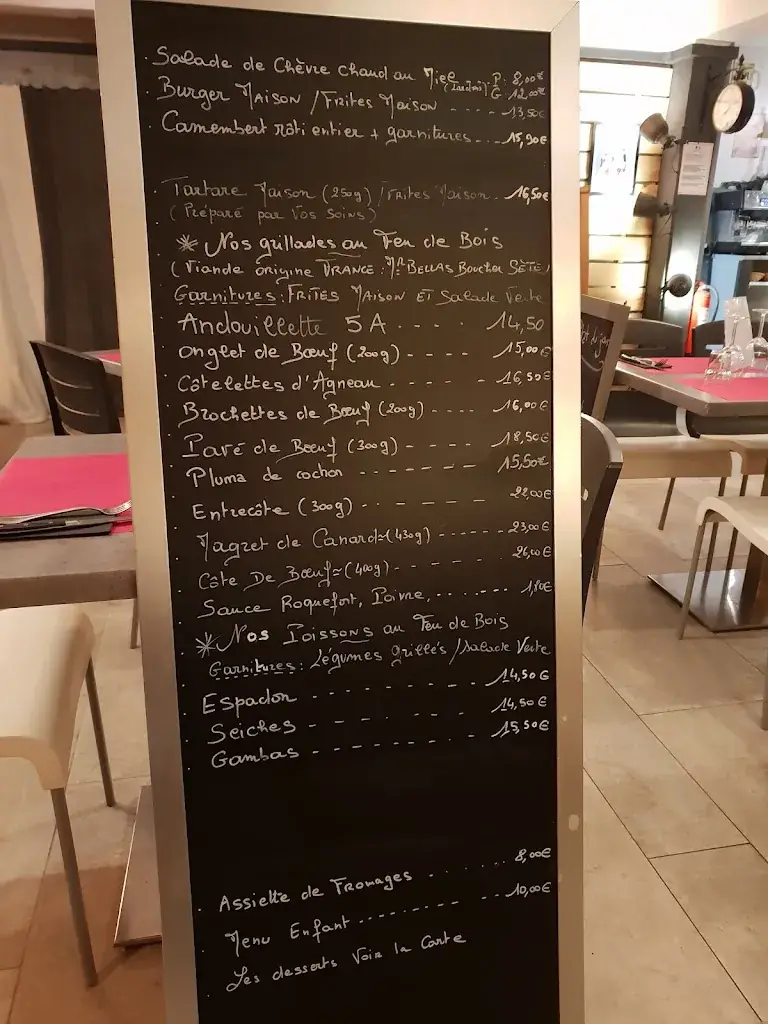 Salade de Chèvre Chaud au Miel (Lardons) P: 8,00€
G: 12,00€
Burger Maison / Frites Maison ---- 13,50€
Camembert rôti entier + garnitures... 15,90€
Tartare Maison (250g) / Frites Maison. 16,50€
(Préparé par Vos Soins)
* Nos grillades au Feu de Bois
(Viande origine FRANCE: Mr BELLAS Boucher SÈTE)
Garnitures: FRITES MAISON ET Salade Verte
Andouillette 5A .... 14,50
Onglet de Bœuf (200g) ---- 15,00€
Côtelettes d'Agneau ---- 16,50€
Brochettes de Bœuf (200g) ---- 16,00€
Pavé de Bœuf (300g) ---- 18,50€
Pluma de cochon ------- 15,50€
Entrecôte (300g) ------ 22,00€
Magret de Canard ≈ (430g) ------ 23,00€
Côte De Bœuf ≈ (400g) ------ 26,00€
Sauce Roquefort, Poivre, ...... 1,80€
* Nos Poissons au Feu de Bois
Garnitures: Légumes grillés / Salade Verte
Espadon -------- 14,50€
Seiches -------- 14,50€
Gambas -------- 15,50€
Assiette de Fromages ...... 8,00€
Menu Enfant -------- 10,00€
Les desserts Voir la Carte